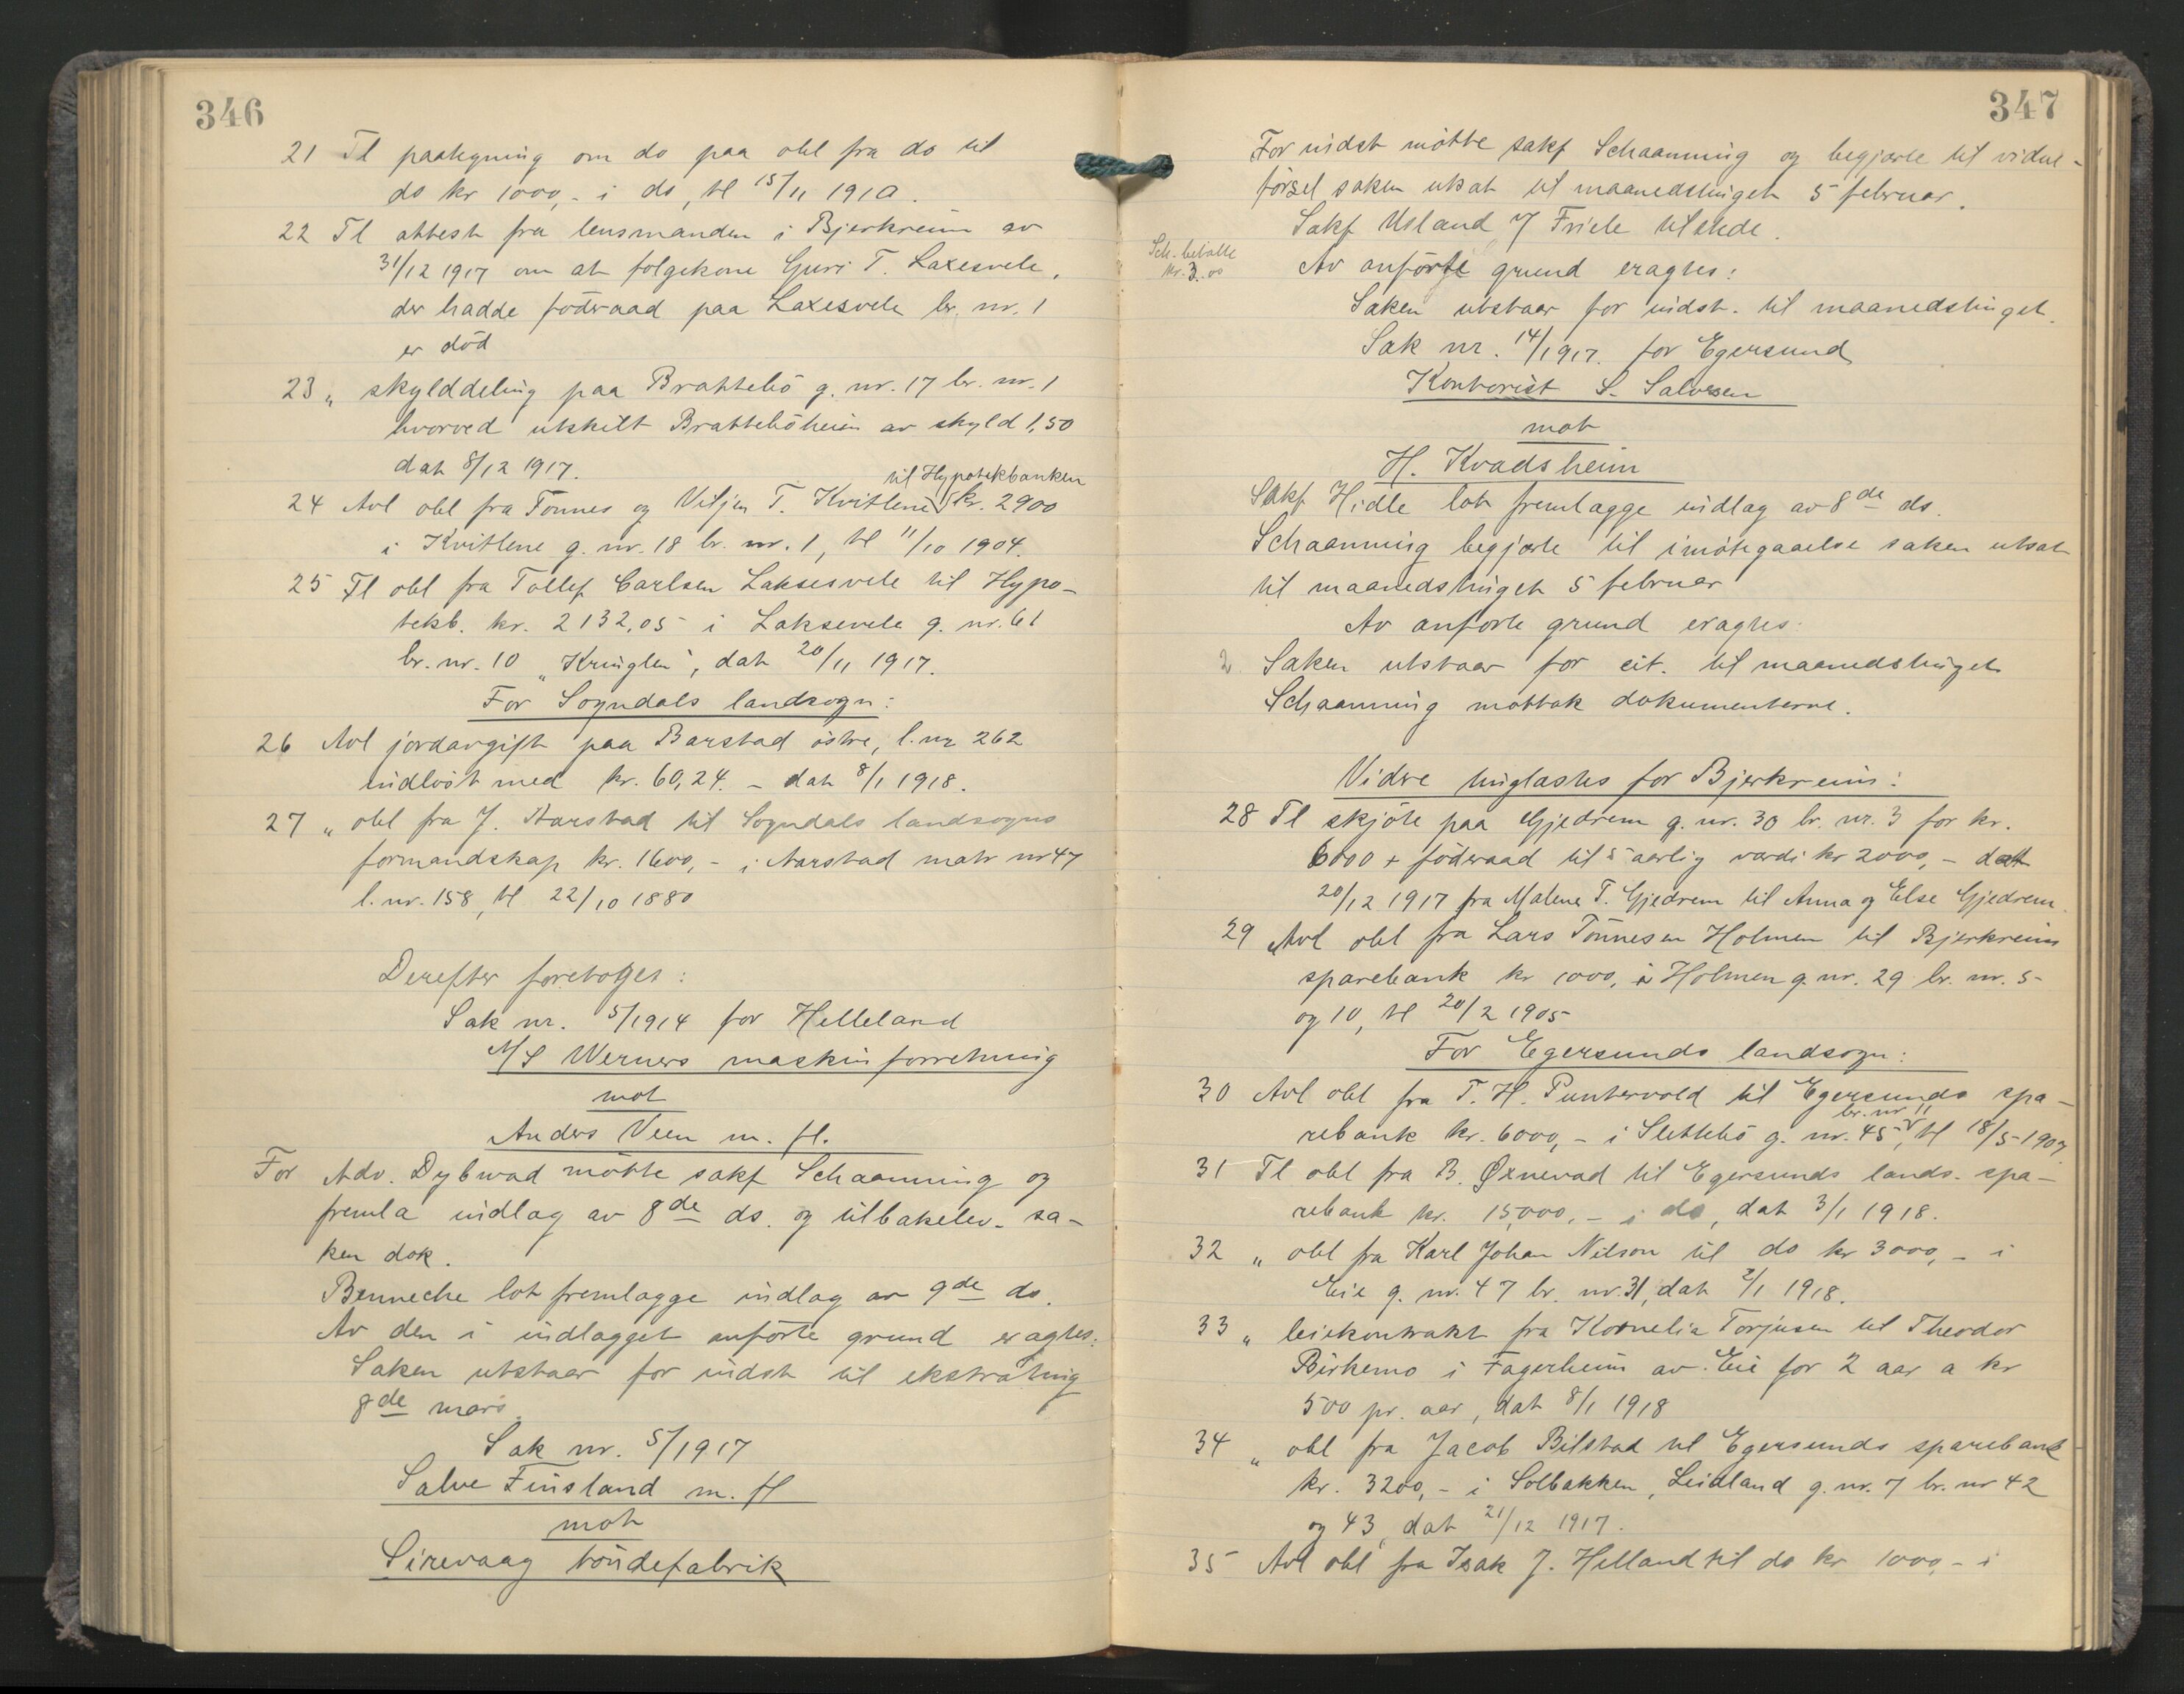 346
21 Tl paategning om do paa obl fra do til
do kr 1000,- i do, tl 15/11 1910.
22 Tl attest fra lensmanden i Bjerkreim av
31/12 1917 om at følgekone Guri T. Laxesvele,
der hadde föderaad paa Laxesvele br. nr. 1
er död
23 „ skylddeling paa Brattebö g. nr. 17 br. nr. 1
hvorved utskilt Bratteböheim av skyld 1,50
dat 8/12 1917.
til Hypotekbanken
24 Avl obl fra Tönnes og Veljen T. Kvitlene kr. 2900
i Kvitlene g. nr. 18 br. nr. 1, tl 11/10 1904.
25 Tl obl fra Tollef Carlsen Laksesvele til Hypo-
tekb. kr. 2132,05 i Laksevele g. nr. 61
br. nr. 10 „Kringlen", dat 20/11 1917.
For Sogndals landsogn:
26 Avl jordavgift paa Barstad östre, l. nr 262
indlöst med kr. 60,24. - dat 8/1 1918.
27 „ obl fra J. Aarstad til Sogndals landsogns
formandskap kr. 1600,- i Aarstad matr nr 47
l. nr. 158, tl 22/10 1880
Derefter foretoges:
Sak nr. 5/1914 for Helleland
A/S Werners maskinforretning
mot
Anders Veen m. fl.
For Adv. Dybwad mötte sakf Schaanning og
fremla indlæg av 8de ds. og tilbakelev. sa-
ken dok.
Benneche lot fremlægge indlæg av 9de ds.
Av den i indlægget anförte grund eragtes:
Saken utstaar for indst til ekstrating
8de mars.
Sak nr. 5/1917
Salve Finsland m. fl
mot
Sirevaag töndefabrik
347
For indst mötte sakf Schaanning og begjærte til videre-
försel saken utsat til maanedstinget 5 februar.
Sakf Usland & Friele tilstede.
Sch. betalte
kr. 3.00
Av anförte grund eragtes:
Saken utstaar for indst. til maanedstinget.
Sak nr. 14/1917. for Egersund
Kontorist S. Salvesen
mot
H. Kvadsheim
Sakf Hidle lot fremlægge indlæg av 8de ds.
Schaanning begjærte til imötegaaelse saken utsat
til maanedstinget 5 februar
Av anförte grund eragtes:
2 Saken utstaar for cit. til maanedstinget
Schaanning mottok dokumenterne.
Videre tinglæstes for Bjerkreim:
28 Tl skjöte paa Gjedrem g. nr. 30 br. nr. 3 for kr.
6000 + föderaad til 5 aarlig værdi kr 2000,- dat
20/12 1917 fra Malene T. Gjedrem til Anna og Else Gjedrem.
29 Avl obl fra Lars Tönnesen Holmen til Bjerkreim
sparebank kr 1000, i Holmen g. nr. 29 br. nr. 5
og 10, tl 20/2 1905
For Egersunds landsogn:
30 Avl obl fra T. H. Puntervold til Egersunds spa-
br. nr 11
rebank kr. 6000,- i Slettebö g. nr. 45, tl 18/5 1907
31 Tl obl fra B. Øxnevad til Egersunds lands. spa-
rebank kr. 15,000,- i do, dat 3/1 1918.
32 „ obl fra Karl Johan Nilson til do kr 3000,- i
Eie g. nr. 47 br. nr. 31, dat 2/1 1918.
33 „ leiekontrakt fra Kornelia Torjusen til Theodor
Birkemo i Fagerheim av Eie for 2 aar a kr
500 pr. aar, dat 8/1 1918
34 „ obl fra Jacob Bilstad til Egersunds sparebank
kr. 3200,- i Solbakken, Leidland g. nr. 7 br. nr 42
og 43, dat 21/12 1917.
35 Avl obl fra Isak J. Helland til do kr 1000,- i